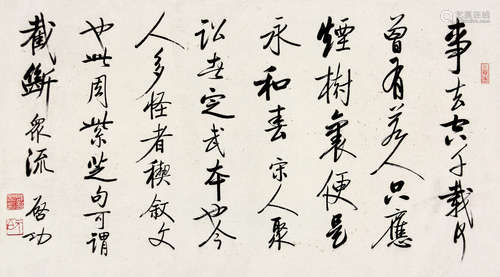 事去空千載何
曾有若人只應
煙樹裏便是
永和春宋人聚
訟者定武本也今
人多怪者禊敘文
也此周紫芝句可謂
截斷眾流 啟功